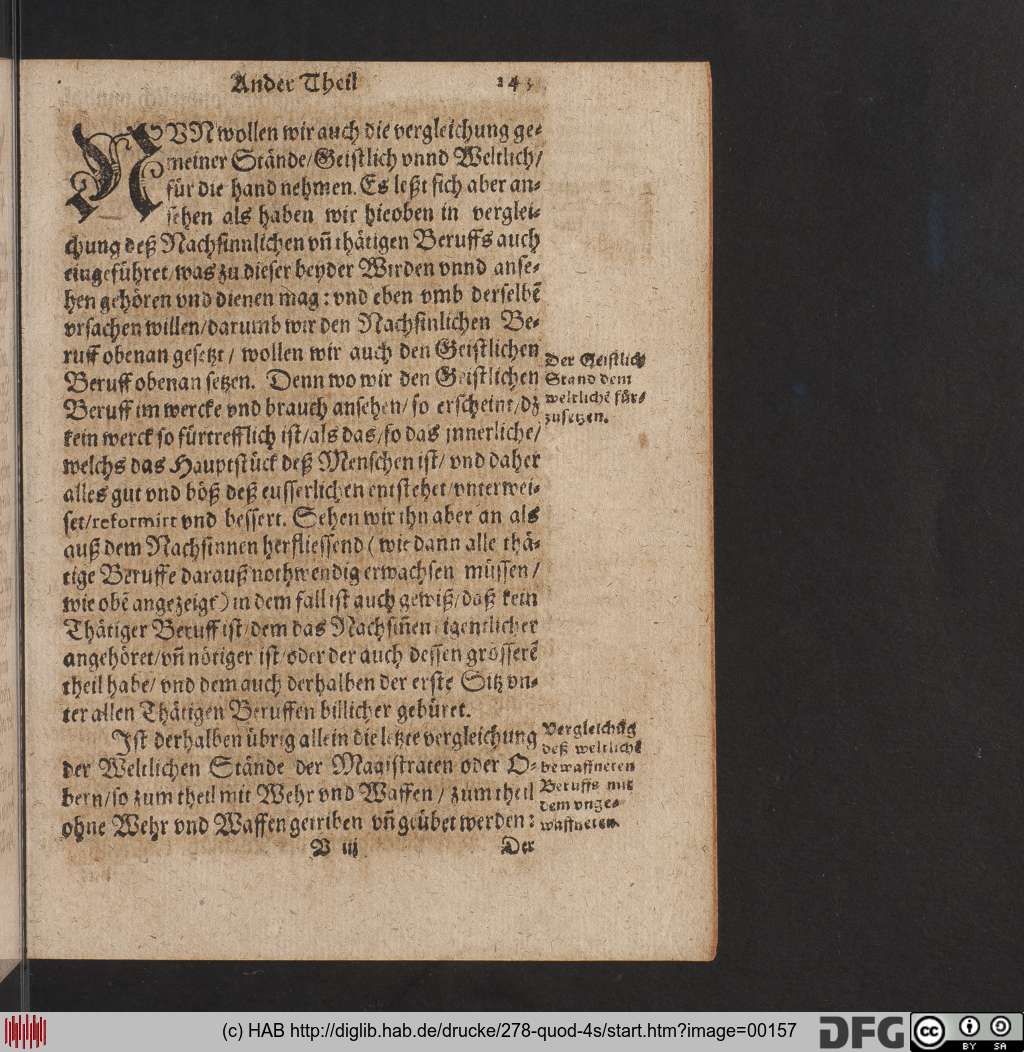 Ander Theil 143
NVN wollen wir auch die vergleichung ge-
meiner Stände/Geistlich vnnd Weltlich/
für die hand nehmen. Es leßt sich aber an-
sehen als haben wir hieoben in verglei-
chung deß Nachsinnlichen vñ thätigen Beruffs auch
eingeführet/was zu dieser beyder Wirden vnnd anse-
hen gehören vnd dienen mag: vnd eben vmb derselbẽ
vrsachen willen/darumb wir den Nachsinlichen Be-
ruff obenan gesetzt/ wollen wir auch den Geistlichen
Beruff obenan setzen. Denn wo wir den Geistlichen
Beruff im wercke vnd brauch ansehen/ so erscheint/dz
kein werck so fürtrefflich ist/als das/so das jnnerliche/
welchs das Hauptstück deß Menschen ist/ vnd daher
alles gut vnd böß deß eusserlichen entstehet/vnterwei-
set/reformirt vnd bessert. Sehen wir jhn aber an als
auß dem Nachsinnen herfliessend (wie dann alle thä-
tige Beruffe darauß nothwendig erwachsen müssen/
wie obẽ angezeigt) in dem fall ist auch gewiß/daß kein
Thätiger Beruff ist/dem das Nachsiñen eigentlicher
angehöret/vñ nötiger ist/oder der auch dessen grösserẽ
theil habe/ vnd dem auch derhalben der erste Sitz vn-
ter allen Thätigen Beruffen billicher gebüret.
Ist derhalben übrig allein die letzte vergleichung
der Weltlichen Stände der Magistraten oder O-
bern/so zum theil mit Wehr vnd Waffen/ zum theil
ohne Wehr vnd Waffen getriben vñ geübet werden:
V iij Der
Der Geistlich
Stand dem
weltlichẽ für-
zusetzen.
Vergleichũg
deß weltlichẽ
bewaffneten
Beruffs mit
dem vnge-
waffneten.
(c) HAB http://diglib.hab.de/drucke/278-quod-4s/start.htm?image=00157
DFG
cc BY SA